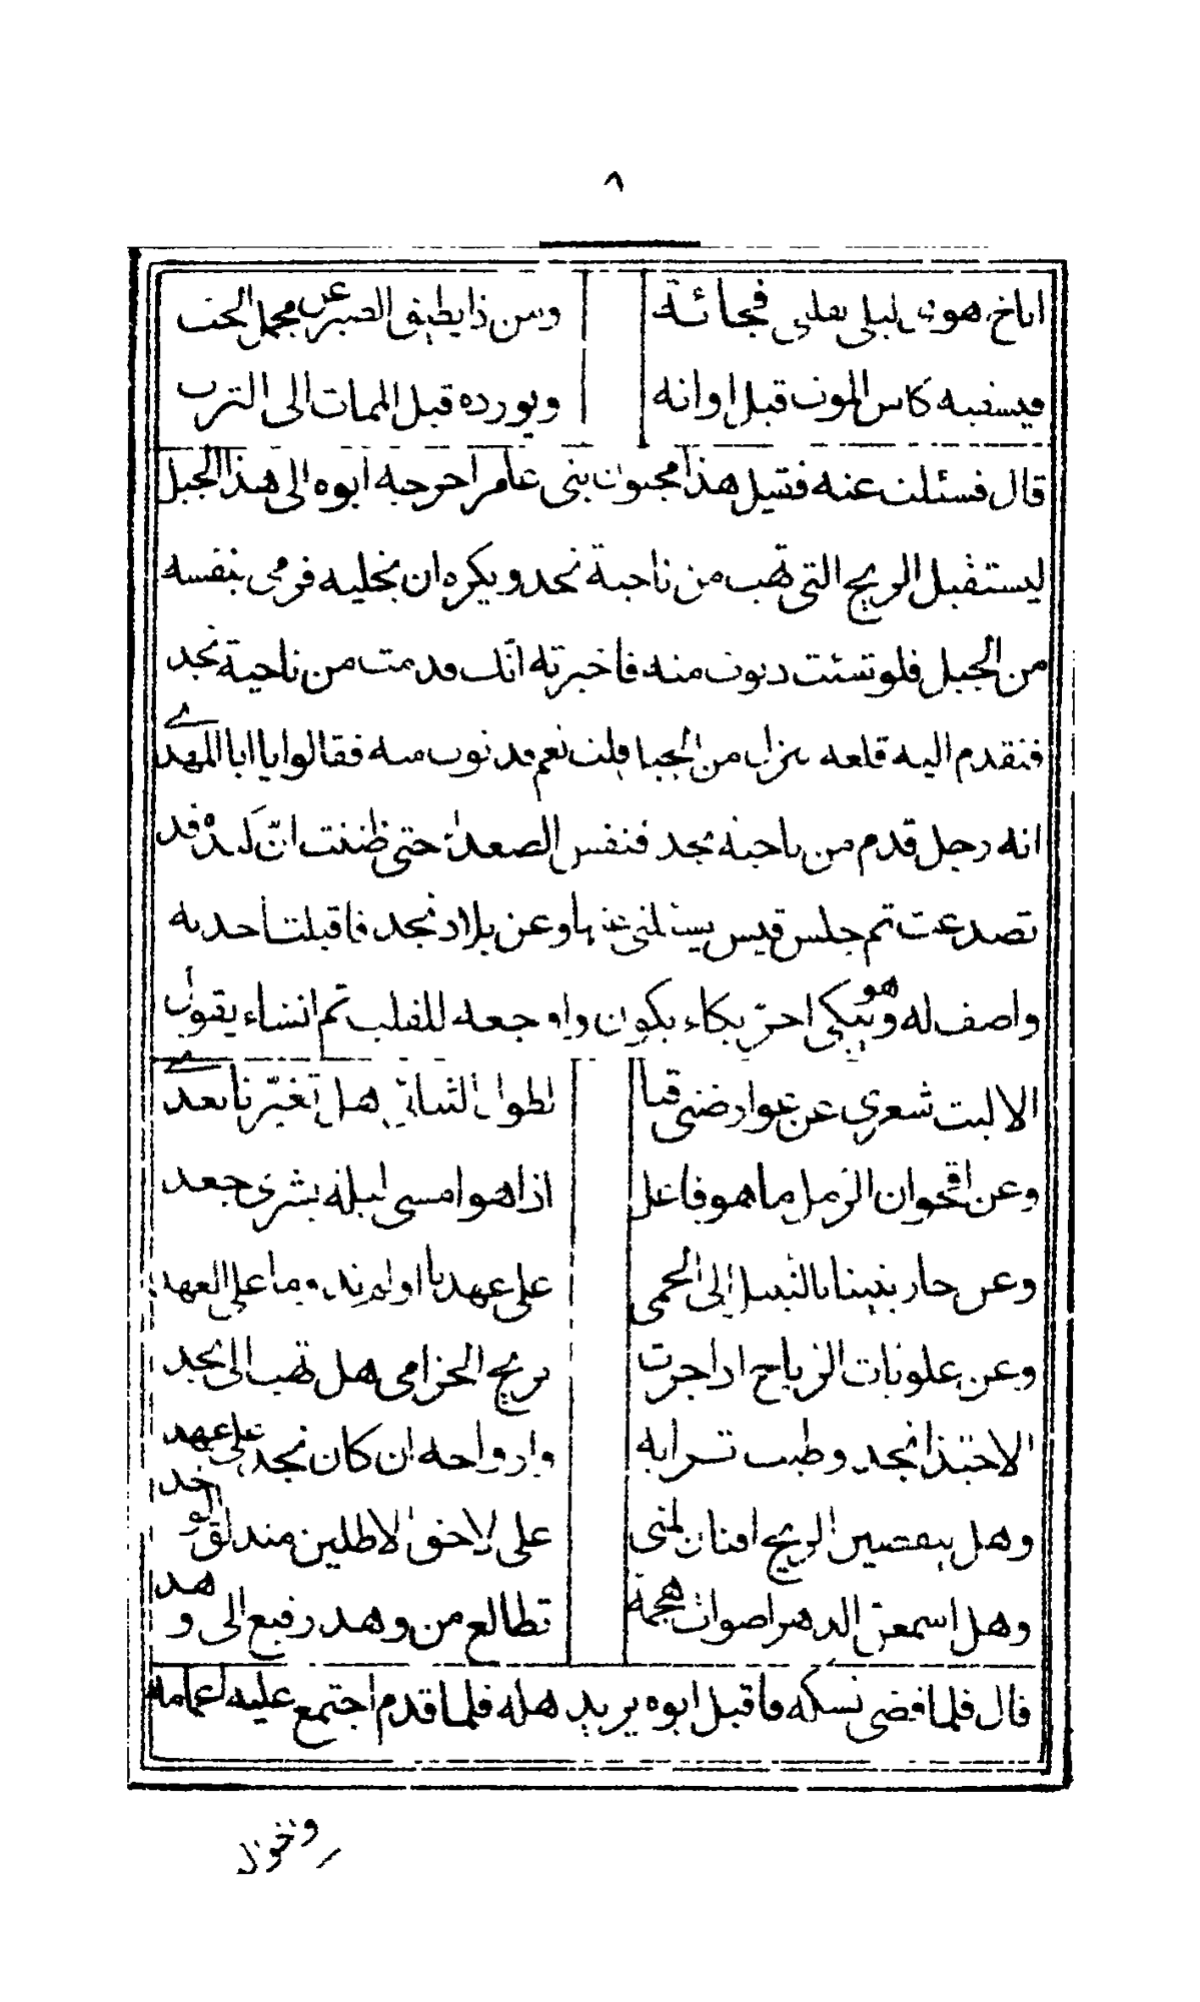 ٨
اناخ هوى ليلى بقلبى فجائة ومن ذا يطيق الصبر عن محمل الحب
فيسقيه كاس الموت قبل اوانه ويورده قبل الممات الى الترب
قال فسئلت عنه فقيل هذا مجنون بنى عامر اخرجه ابوه الى هذا الجبل
ليستقبل الريح التى تهب من ناحية نجد ويكره ان يخليه فرمى بنفسه
من الجبل فلو شئت دنوت منه فاخبرته انّك قدمت من ناحية نجد
فنقدم اليه قلعه ينزل من الجبل قلت نعم فدنوت منه فقالوا يا ابا المهدے
انه رجل قدم من ناحية نجد فنفس الصعداء حتى ظننت انّ كبده قد
تصدعت ثم جلس قيس يسئلنى عنها وعن بلاد نجد فاقبلت احدثه
واصف له وهو يبكى احرّ بكاء يكون واوجعه للقلب ثم انشاء يقول
الا ليت شعري عن عوارضتى قبا لطول الثنائي هل تغيّرنا بعدے
وعن اقحوان الرمل ما هو فاعل اذا هو امسى ليلة بثرى جعد
وعن جار بيننا بالنيل الى الحمى على عهدنا او لم يدوما على العهد
وعن علونات الرياح اذا جرت بريح الخزامى هل تهب الى نجد
الا حبّذا نجد وطيب ترابه وارواحه ان كان نجد على عهد
وهل ينفضن الريح افنان لمتى على لاحق الاطلين مندلق الوخد
وهل اسمعن الدهر اصوات هجمة تطالع من وهد رفيع الى وهد
قال فلما قضى نسكه واقبل ابوه يريد هله فلما قدم اجتمع عليه اعمامه